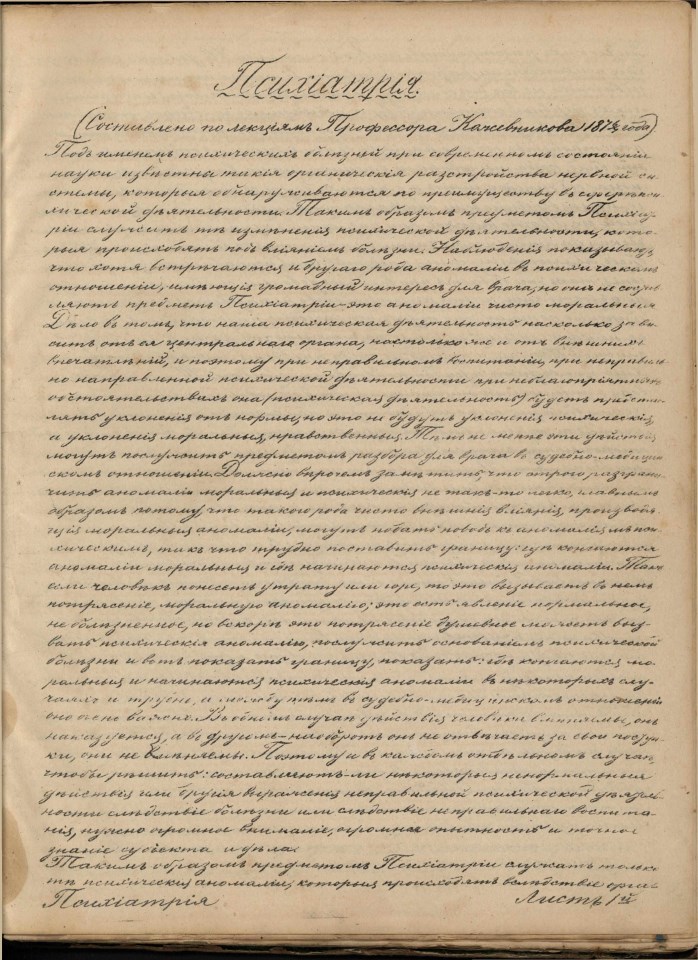 Психіатрія.
(Составлено по лекціямъ Профессора Кажевникова 187 года)
Подъ именемъ психическихъ болѣзней при современномъ состояніи
науки извѣстны такія органическія разстройства нервной си-
стемы, которыя обнаруживаются по преимуществу въ сферѣ пси-
хической дѣятельности. Такимъ образомъ предметомъ Психіат-
ріи служатъ тѣ измѣненія психической дѣятельности, кото-
рыя происходятъ подъ вліяніемъ болѣзни. Наблюденія показываютъ,
что хотя встрѣчаются и другаго рода аномаліи въ психическомъ
отношеніи, имѣющія громадный интересъ для врача, но онѣ не состав-
ляютъ предметъ Психіатріи – это аномаліи чисто моральныя
Дѣло въ томъ, что наша психическая дѣятельность насколько зави-
ситъ отъ ея центральнаго органа, настолько же и отъ внѣшнихъ
впечатлѣній, и поэтому при неправильномъ воспитаніи, при неправиль-
но направленной психической дѣятельности при неблагопріятныхъ
обстоятельствахъ она (психическая дѣятельность) будетъ представ-
лять уклоненія отъ нормы, но это не будутъ уклоненія психическія,
а уклоненія моральныя, нравственныя. Тѣмъ не менѣе эти дѣйствія
могутъ послужить предметомъ разбора для врача въ судебно-медицин-
скомъ отношеніи. Должно впрочемъ замѣтить, что строго разграни-
чить аномаліи моральныя и психическія не такъ-то легко, главнымъ
образомъ потому, что такого рода чисто внѣшнія вліянія, производя-
щія моральныя аномаліи, могутъ подать поводъ къ аномаліямъ пси-
хическимъ, такъ что трудно поставить границу: гдѣ кончаются
аномаліи моральныя и гдѣ начинаются психическія аномаліи. Такъ
если человѣкъ понесетъ утрату или горе, то это вызываетъ въ немъ
потрясеніе, моральную аномалію; это есть явленіе нормальное,
не болѣзненное, но вскорѣ это потрясеніе душевное можетъ выз-
вать психическія аномаліи, послужить основаніемъ психической
болѣзни и вотъ показать границу, показать: гдѣ кончаются мо-
ральныя и начинаются психическія аномаліи въ нѣкоторыхъ слу-
чаяхъ и трудно, а между тѣмъ въ судебно-медицинскомъ отношеніи
оно очень важно. Въ одномъ случаѣ дѣйствія человѣка вмѣняемы, онъ
наказуется, а въ другомъ – наоборотъ онъ не отвѣчаетъ за свои поступ-
ки, они не вмѣняемы. Поэтому и въ каждомъ отдѣльномъ случаѣ,
чтобы рѣшить: составляютъ-ли нѣкоторыя ненормальныя
дѣйствія или другія выраженія неправильной психической дѣятель-
ности слѣдствіе болѣзни или слѣдствіе неправильнаго воспита-
нія, нужно огромное вниманіе, огромная опытность и точное
знаніе субъекта и дѣла.
Такимъ образомъ предметомъ Психіатріи служатъ только
тѣ психическія аномаліи, которыя происходятъ вслѣдствіе орга-
Психіатрія Листъ 1й